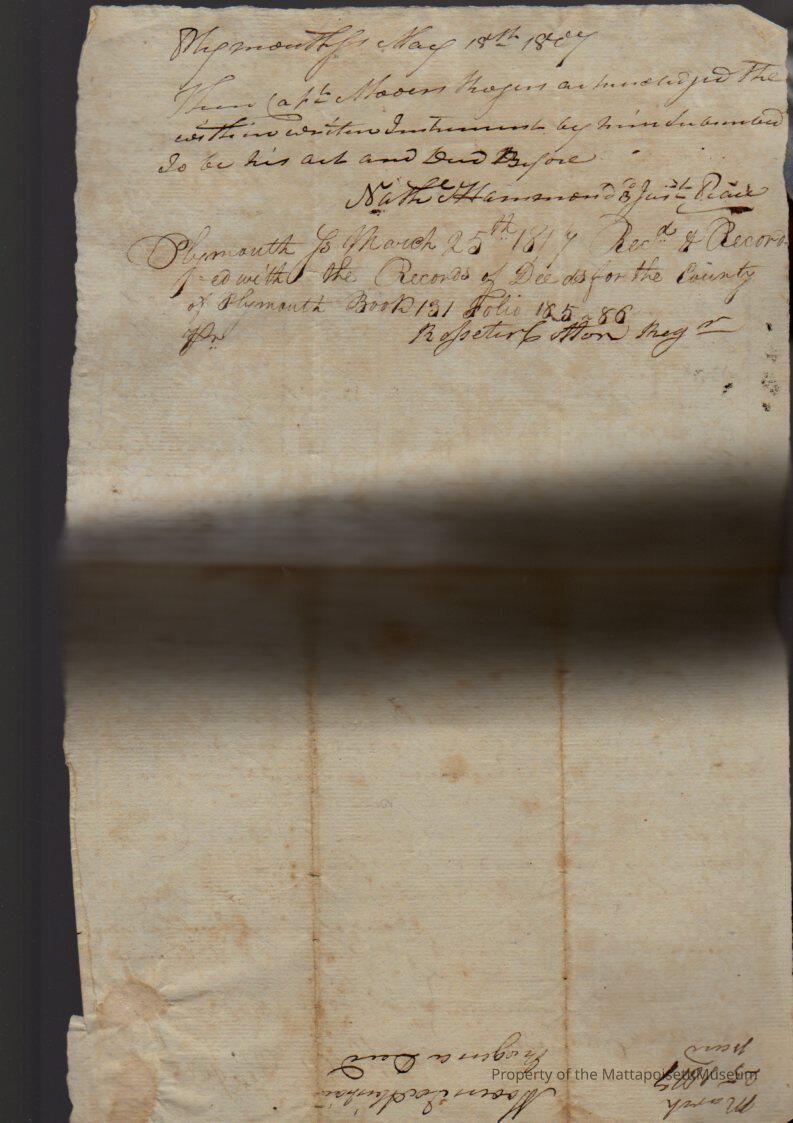 Plymouth Ss May 18th 1807
Then Capt Moores Rogers acknowledged the
within written Instrument by him subscribed
To be his act and Deed Before
Nathl Hammond Just Peace
Plymouth Ss March 25th 1817 Recd & Record
ed with the Records of Deeds for the County
of Plymouth Book 131 Folio 185 - 86
Pr Rosseter Cotton Regr
Rogers a Deed
paid
March
Property of the Mattapoisett Museum